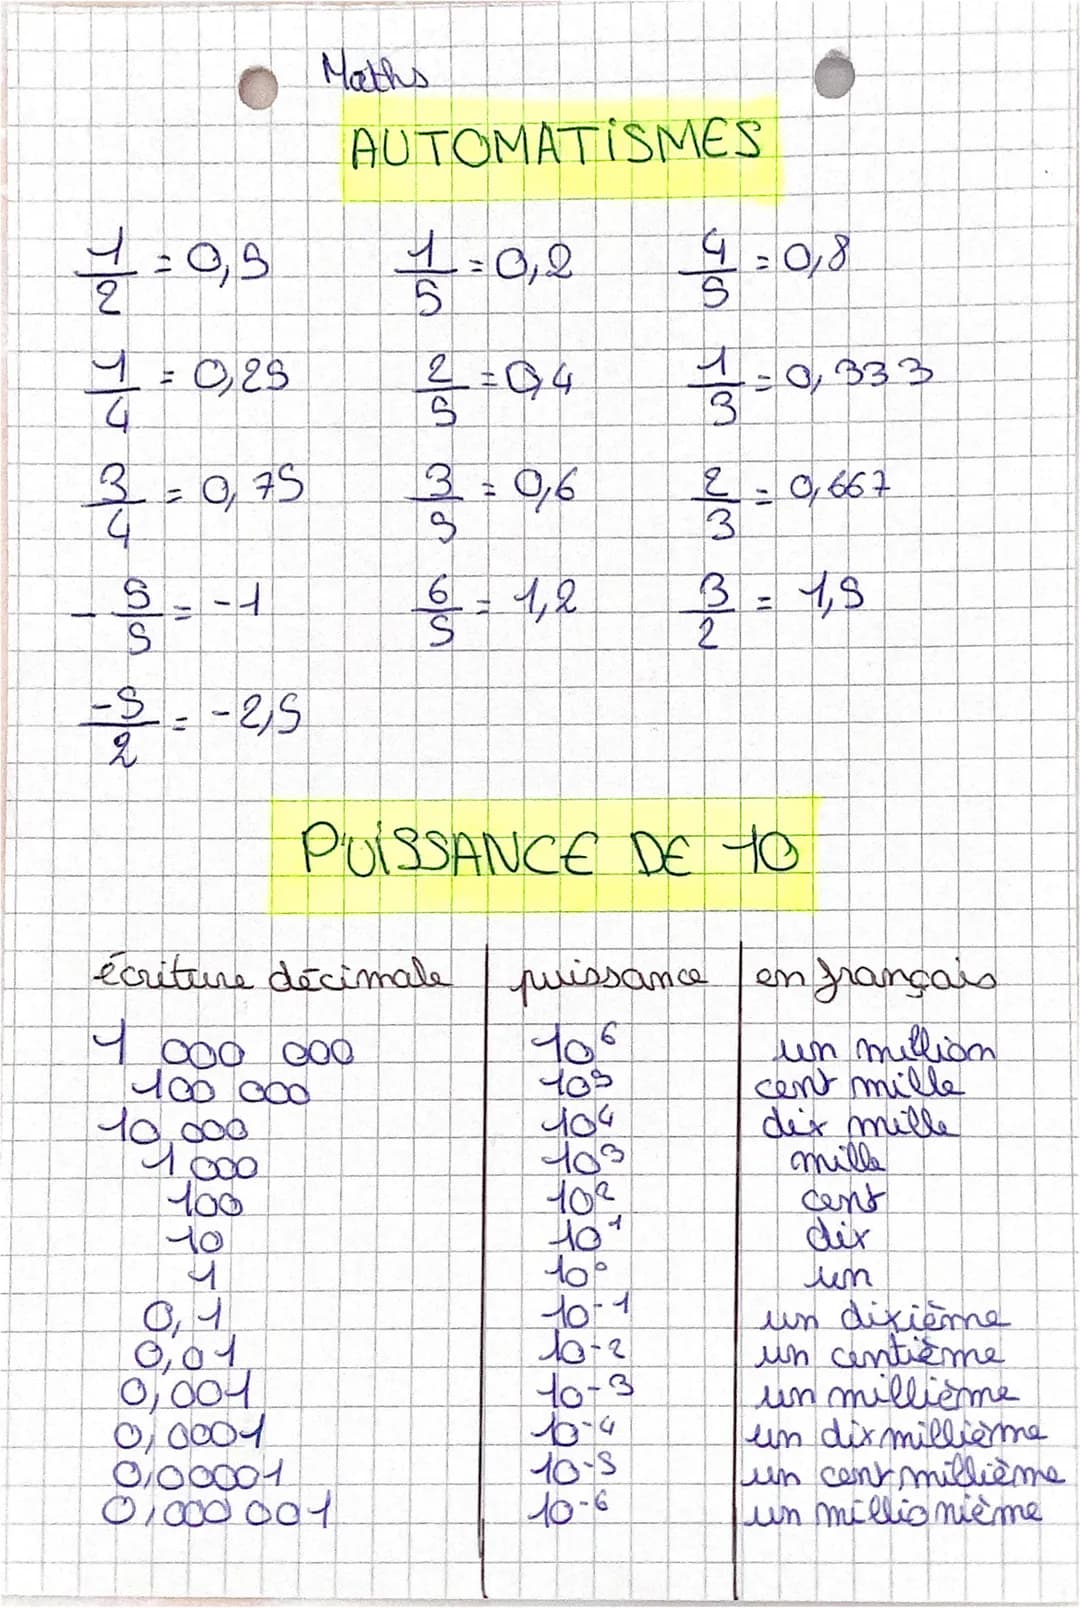 Maths
AUTOMATISMES
1/2 = 0,5 1/5 = 0,2 4/5 = 0,8
1/4 = 0,25 2/5 = 0,4 1/3 = 0,333
3/4 = 0,75 3/5 = 0,6 2/3 = 0,667
- 5/5 = -1 6/5 = 1,2 3/2 = 1,5
-5/2 = -2,5
PUISSANCE DE 10
écriture décimale puissance en français
1 000 000 10⁶ un million
100 000 10⁵ cent mille
10 000 10⁴ dix mille
1 000 10³ mille
100 10² cent
10 10¹ dix
1 10⁰ un
0,1 10⁻¹ un dixième
0,01 10⁻² un centième
0,001 10⁻³ un millième
0,0001 10⁻⁴ un dixmillième
0,00001 10⁻⁵ un centmillième
0,000 001 10⁻⁶ un millionième